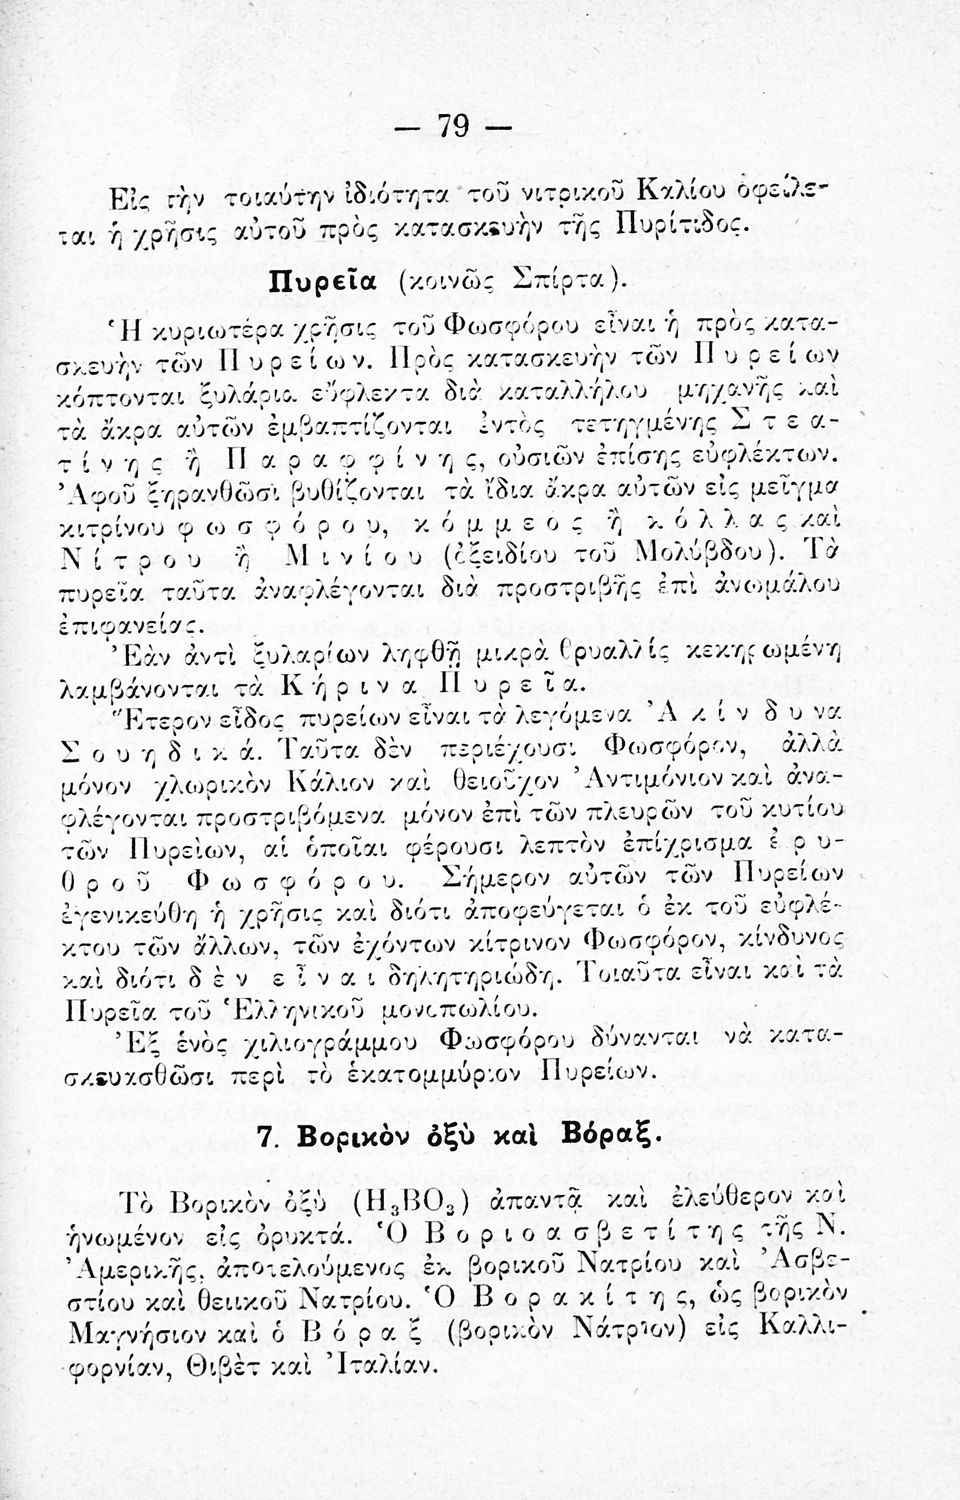 — 79 —
Εἰς τὴν τοιαύτην ἰδιότητα τοῦ νιτρικοῦ Καλίου ὀφείλε-
ται ἡ χρῆσις αὐτοῦ πρὸς κατασκευὴν τῆς Πυρίτιδος.
Πυρεῖα (κοινῶς Σπίρτα).
Ἡ κυριωτέρα χρῆσις τοῦ Φωσφόρου εἶναι ἡ πρὸς κατα-
σκευὴν τῶν Πυρείων. Πρὸς κατασκευὴν τῶν Πυρείων
κόπτονται ξυλάρια εὔφλεκτα διὰ καταλλήλου μηχανῆς καὶ
τὰ ἄκρα αὐτῶν ἐμβαπτίζονται ἐντὸς τετηγμένης Στεα-
τίνης ἢ Παραφφίνης, οὐσιῶν ἐπίσης εὐφλέκτων.
Ἀφοῦ ξηρανθῶσι βυθίζονται τὰ ἴδια ἄκρα αὐτῶν εἰς μεῖγμα
κιτρίνου φωσφόρου, κόμμεος ἢ κόλλας καὶ
Νίτρου ἢ Μινίου (ὀξειδίου τοῦ Μολύβδου). Τὰ
πυρεῖα ταῦτα ἀναφλέγονται διὰ προστριβῆς ἐπὶ ἀνωμάλου
ἐπιφανείας.
Ἐὰν ἀντὶ ξυλαρίων ληφθῇ μικρὰ θρυαλλὶς κεκηρωμένη
λαμβάνονται τὰ Κήρινα Πυρεῖα.
Ἕτερον εἶδος πυρείων εἶναι τὰ λεγόμενα Ἀκίνδυνα
Σουηδικά. Ταῦτα δὲν περιέχουσι Φωσφόρον, ἀλλὰ
μόνον χλωρικὸν Κάλιον καὶ θειοῦχον Ἀντιμόνιον καὶ ἀνα-
φλέγονται προστριβόμενα μόνον ἐπὶ τῶν πλευρῶν τοῦ κυτίου
τῶν Πυρείων, αἱ ὁποῖαι φέρουσι λεπτὸν ἐπίχρισμα ἐρυ-
θροῦ Φωσφόρου. Σήμερον αὐτῶν τῶν Πυρείων
ἐγενικεύθη ἡ χρῆσις καὶ διότι ἀποφεύγεται ὁ ἐκ τοῦ εὐφλέ-
κτου τῶν ἄλλων, τῶν ἐχόντων κίτρινον Φωσφόρον, κίνδυνος
καὶ διότι δὲν εἶναι δηλητηριώδη. Τοιαῦτα εἶναι καὶ τὰ
Πυρεῖα τοῦ Ἑλληνικοῦ μονοπωλίου.
Ἐξ ἑνὸς χιλιογράμμου Φωσφόρου δύνανται νὰ κατα-
σκευασθῶσι περὶ τὸ ἑκατομμύριον Πυρείων.
7. Βορικὸν ὀξὺ καὶ Βόραξ.
Τὸ Βορικὸν ὀξὺ (H₃BO₃) ἀπαντᾷ καὶ ἐλεύθερον καὶ
ἡνωμένον εἰς ὀρυκτά. Ὁ Βοριοασβετίτης τῆς Ν.
Ἀμερικῆς, ἀποτελούμενος ἐκ βορικοῦ Νατρίου καὶ Ἀσβε-
στίου καὶ θειικοῦ Νατρίου. Ὁ Βορακίτης, ὡς βορικὸν
Μαγνήσιον καὶ ὁ Βόραξ (βορικὸν Νάτριον) εἰς Καλλι-
φορνίαν, Θιβὲτ καὶ Ἰταλίαν.